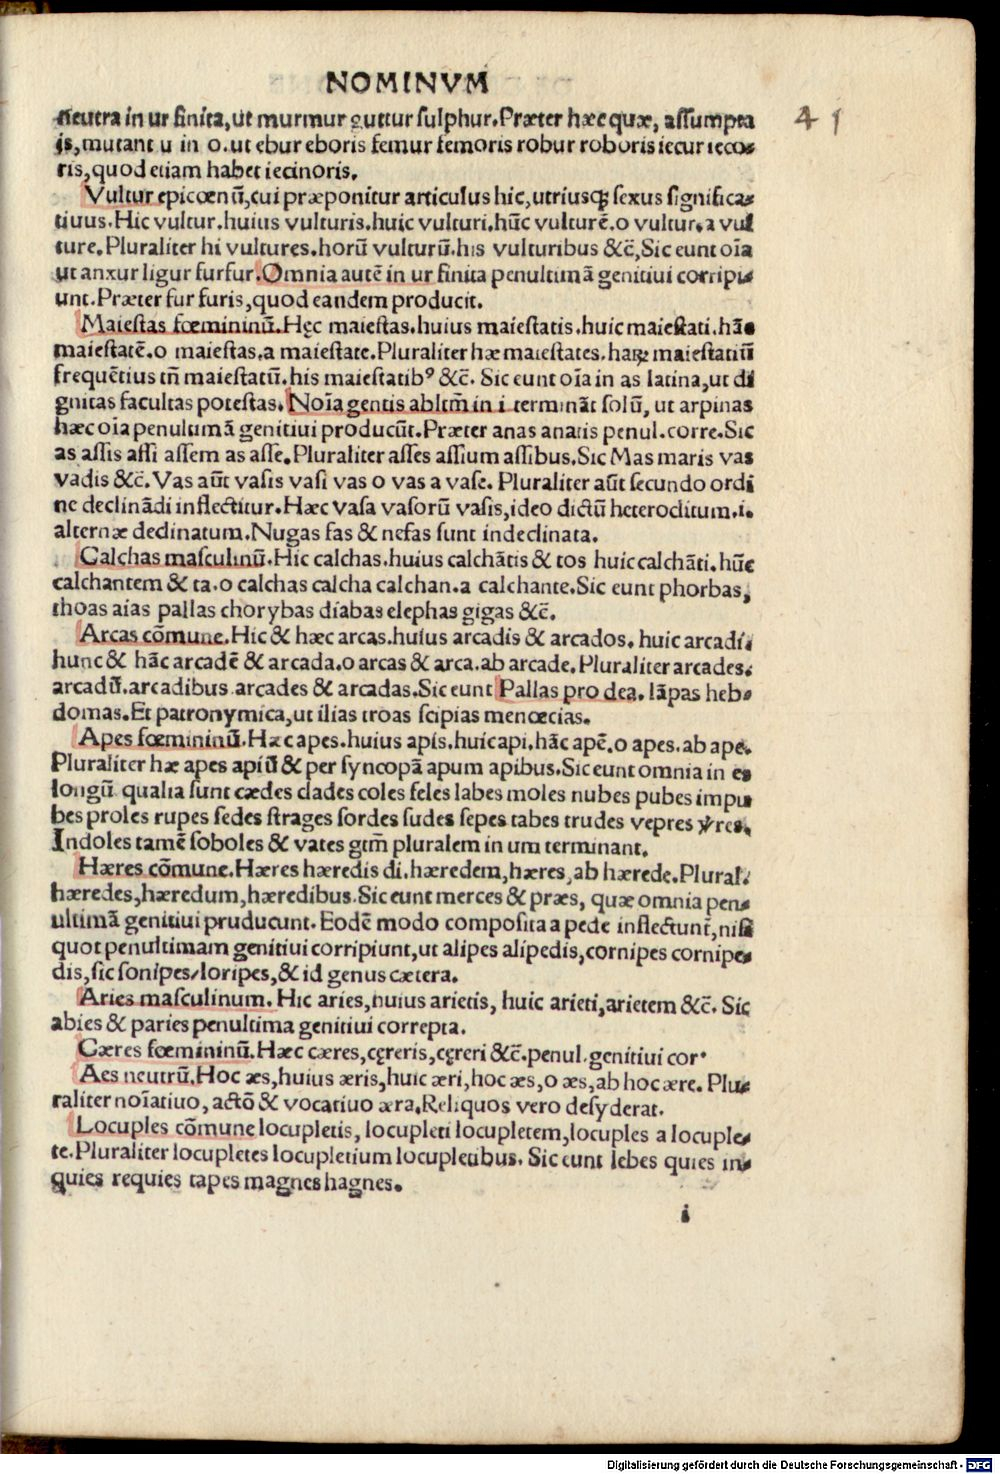 NOMINVM
neutra in ur finita, ut murmur guttur sulphur. Præter hæc quæ, assumpta
is, mutant u in o. ut ebur eboris femur femoris robur roboris iecur ieco-
ris, quod etiam habet iecinoris.
Vultur epicœnū, cui præponitur articulus hic, utriusqȝ sexus significa-
tiuus. Hic vultur. huius vulturis. huic vulturi. hūc vulturē. o vultur. a vul
ture. Pluraliter hi vultures. horū vulturū. his vulturibus &c̄, Sic eunt oīa
ut anxur ligur furfur. Omnia autē in ur finita penultimā genitiui corripi-
unt. Præter fur furis, quod eandem producit.
Maiestas fœmininū. Hęc maiestas. huius maiestatis. huic maiestati. hāc
maiestatē. o maiestas. a maiestate. Pluraliter hæ maiestates. haꝝ maiestatiū
frequētius tñ maiestatū. his maiestatibꝰ &c̄. Sic eunt oīa in as latina, ut di
gnitas facultas potestas. Noīa gentis abltm̄ in i termināt solū, ut arpinas
hæc oīa penultimā genitiui producūt. Præter anas anatis penul. corre. Sic
as assis assi assem as asse. Pluraliter asses assium assibus. Sic Mas maris vas
vadis &c̄. Vas aūt vasis vasi vas o vas a vase. Pluraliter aūt secundo ordi
ne declinādi inflectitur. Hæc vasa vasorū vasis, ideo dictū heteroclitum. i.
alternæ declinatum. Nugas fas & nefas sunt indeclinata.
Calchas masculinū. Hic calchas. huius calchātis & tos huic calchāti. hūc
calchantem & ta. o calchas calcha calchan. a calchante. Sic eunt phorbas,
thoas aias pallas chorybas diabas elephas gigas &c̄.
Arcas cōmune. Hic & hæc arcas. huius arcadis & arcados. huic arcadi.
hunc & hāc arcadē & arcada. o arcas & arca. ab arcade. Pluraliter arcades.
arcadū. arcadibus arcades & arcadas. Sic eunt Pallas pro dea. lāpas heb-
domas. Et patronymica, ut ilias troas scipias menœcias.
Apes fœmininū. Hæc apes. huius apis. huic api. hāc apē. o apes. ab ape.
Pluraliter hæ apes apiū & per syncopā apum apibus. Sic eunt omnia in es
longū qualia sunt cædes clades coles feles labes moles nubes pubes impu
bes proles rupes sedes strages sordes sudes sepes tabes trudes vepres res.
Indoles tamē soboles & vates gtm̄ pluralem in um terminant.
Hæres cōmune. Hæres hæredis di. hæredem, hæres, ab hærede. Plural.
hæredes, hæredum, hæredibus. Sic eunt merces & præs, quæ omnia pen-
ultimā genitiui pruducunt. Eodē modo composita a pede inflectunt, nisi
quot penultimam genitiui corripiunt, ut alipes alipedis, cornipes cornipe-
dis, sic sonipes/loripes, & id genus cætera.
Aries masculinum. Hic aries, huius arietis, huic arieti, arietem &c̄. Sic
abies & paries penultima genitiui correpta.
Cæres fœmininū. Hæc cæres, cęreris, cęreri &c̄. penul. genitiui cor.
Aes neutrū. Hoc æs, huius æris, huic æri, hoc æs, o æs, ab hoc ære. Plu-
raliter noīatiuo, actō & vocatiuo æra. Reliquos vero desyderat.
Locuples cōmune locupletis, locupleti locupletem, locuples a locuple-
te. Pluraliter locupletes locupletium locupletibus. Sic eunt lebes quies in-
quies requies tapes magnes hagnes.
i
41
Digitalisierung gefördert durch die Deutsche Forschungsgemeinschaft - DFG